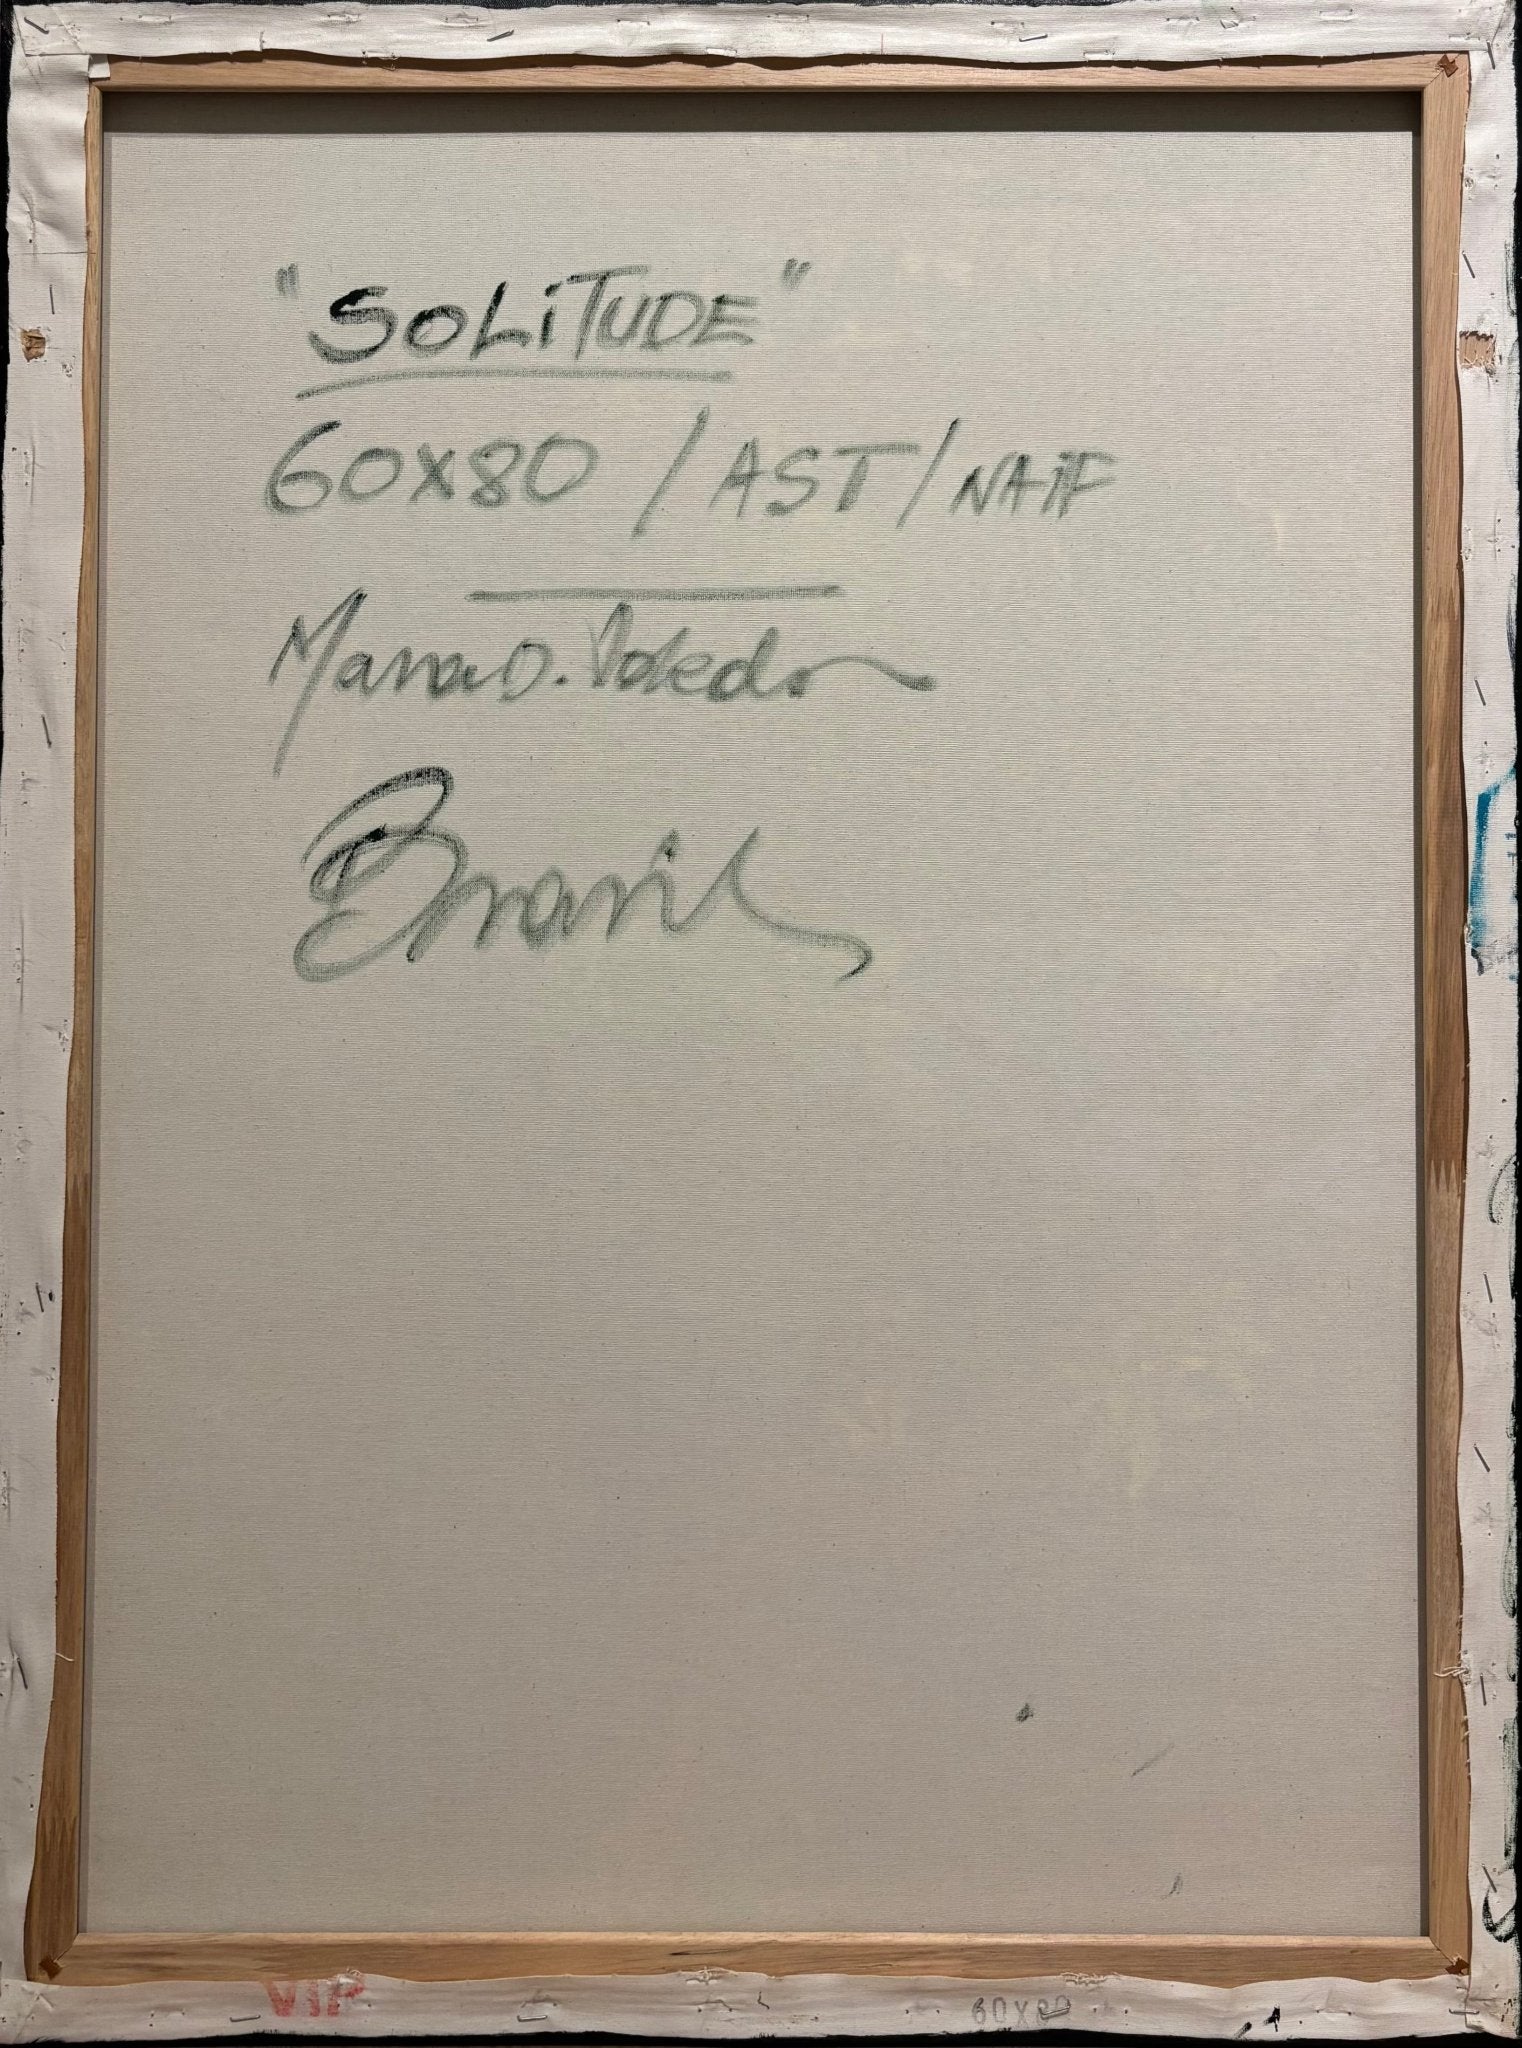 "SOLiTUDE"
60X80 / AST / NAiF
Mara D. Toledo
Brasil
VIP
60X80